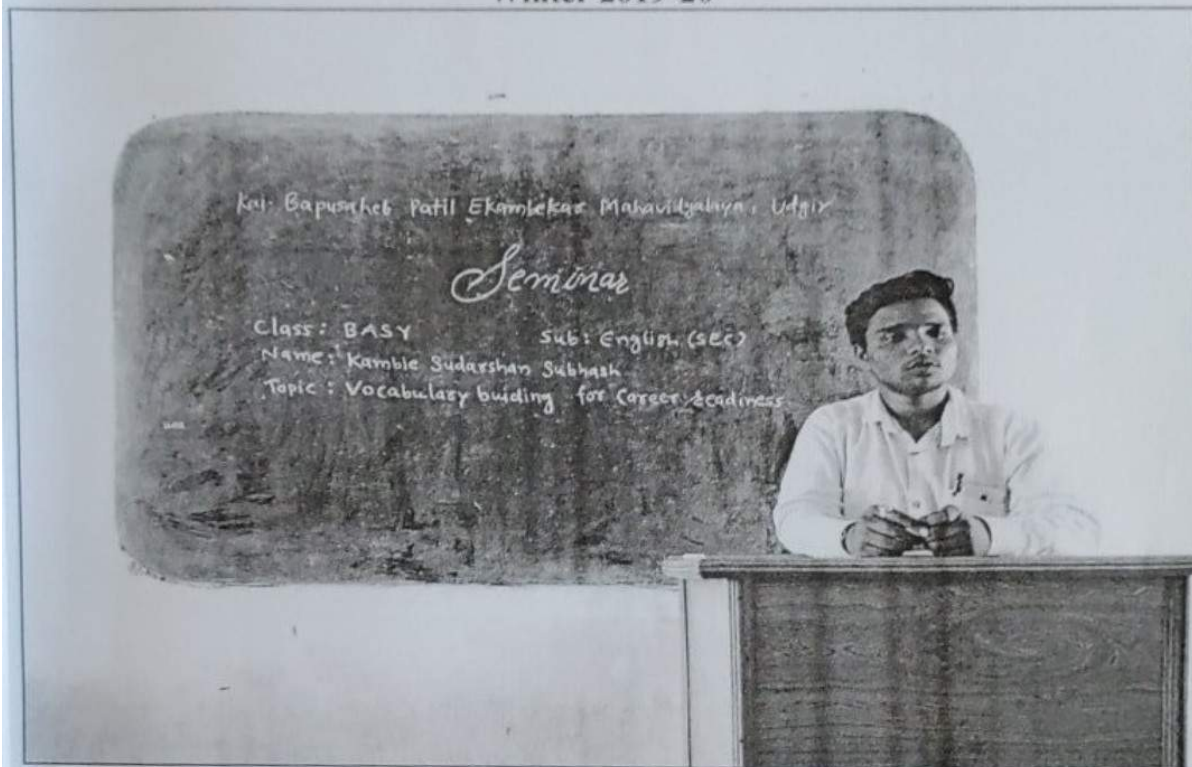 Winter 2019-20
Kai. Bapusaheb Patil Ekambekar Mahavidyalaya, Udgir
Seminar
Class: BASY Sub: English (SEC)
Name: Kamble Sudarshan Subhash
Topic: Vocabulary buiding for Career readiness